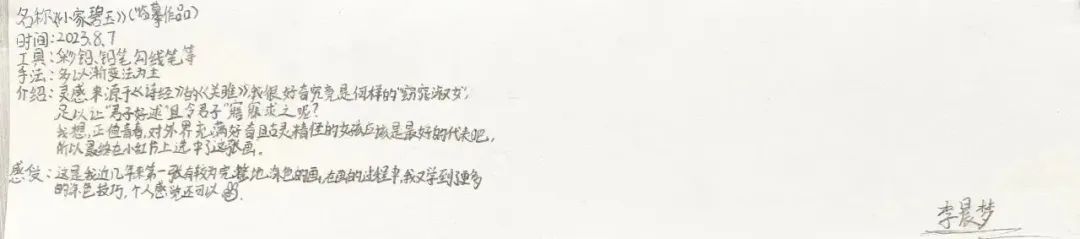 名称《小家碧玉》(临摹作品)
时间:2023.8.7
工具:彩铅、铅笔勾线笔等
手法:多以渐变法为主
介绍:灵感来源于《诗经》的《关雎》,我很好奇究竟是何样的"窈窕淑女",
足以让"君子好逑"且令君子"寤寐求之呢?
我想,正值青春,对外界充满好奇且古灵精怪的女孩应该是最好的代表吧,
所以最终在小红书上选中了这张画。
感受:这是我近几年来第一张较为完整地涂色的画,在画的过程中,我又学到了更多
的涂色技巧,个人感觉还可以
李晨梦